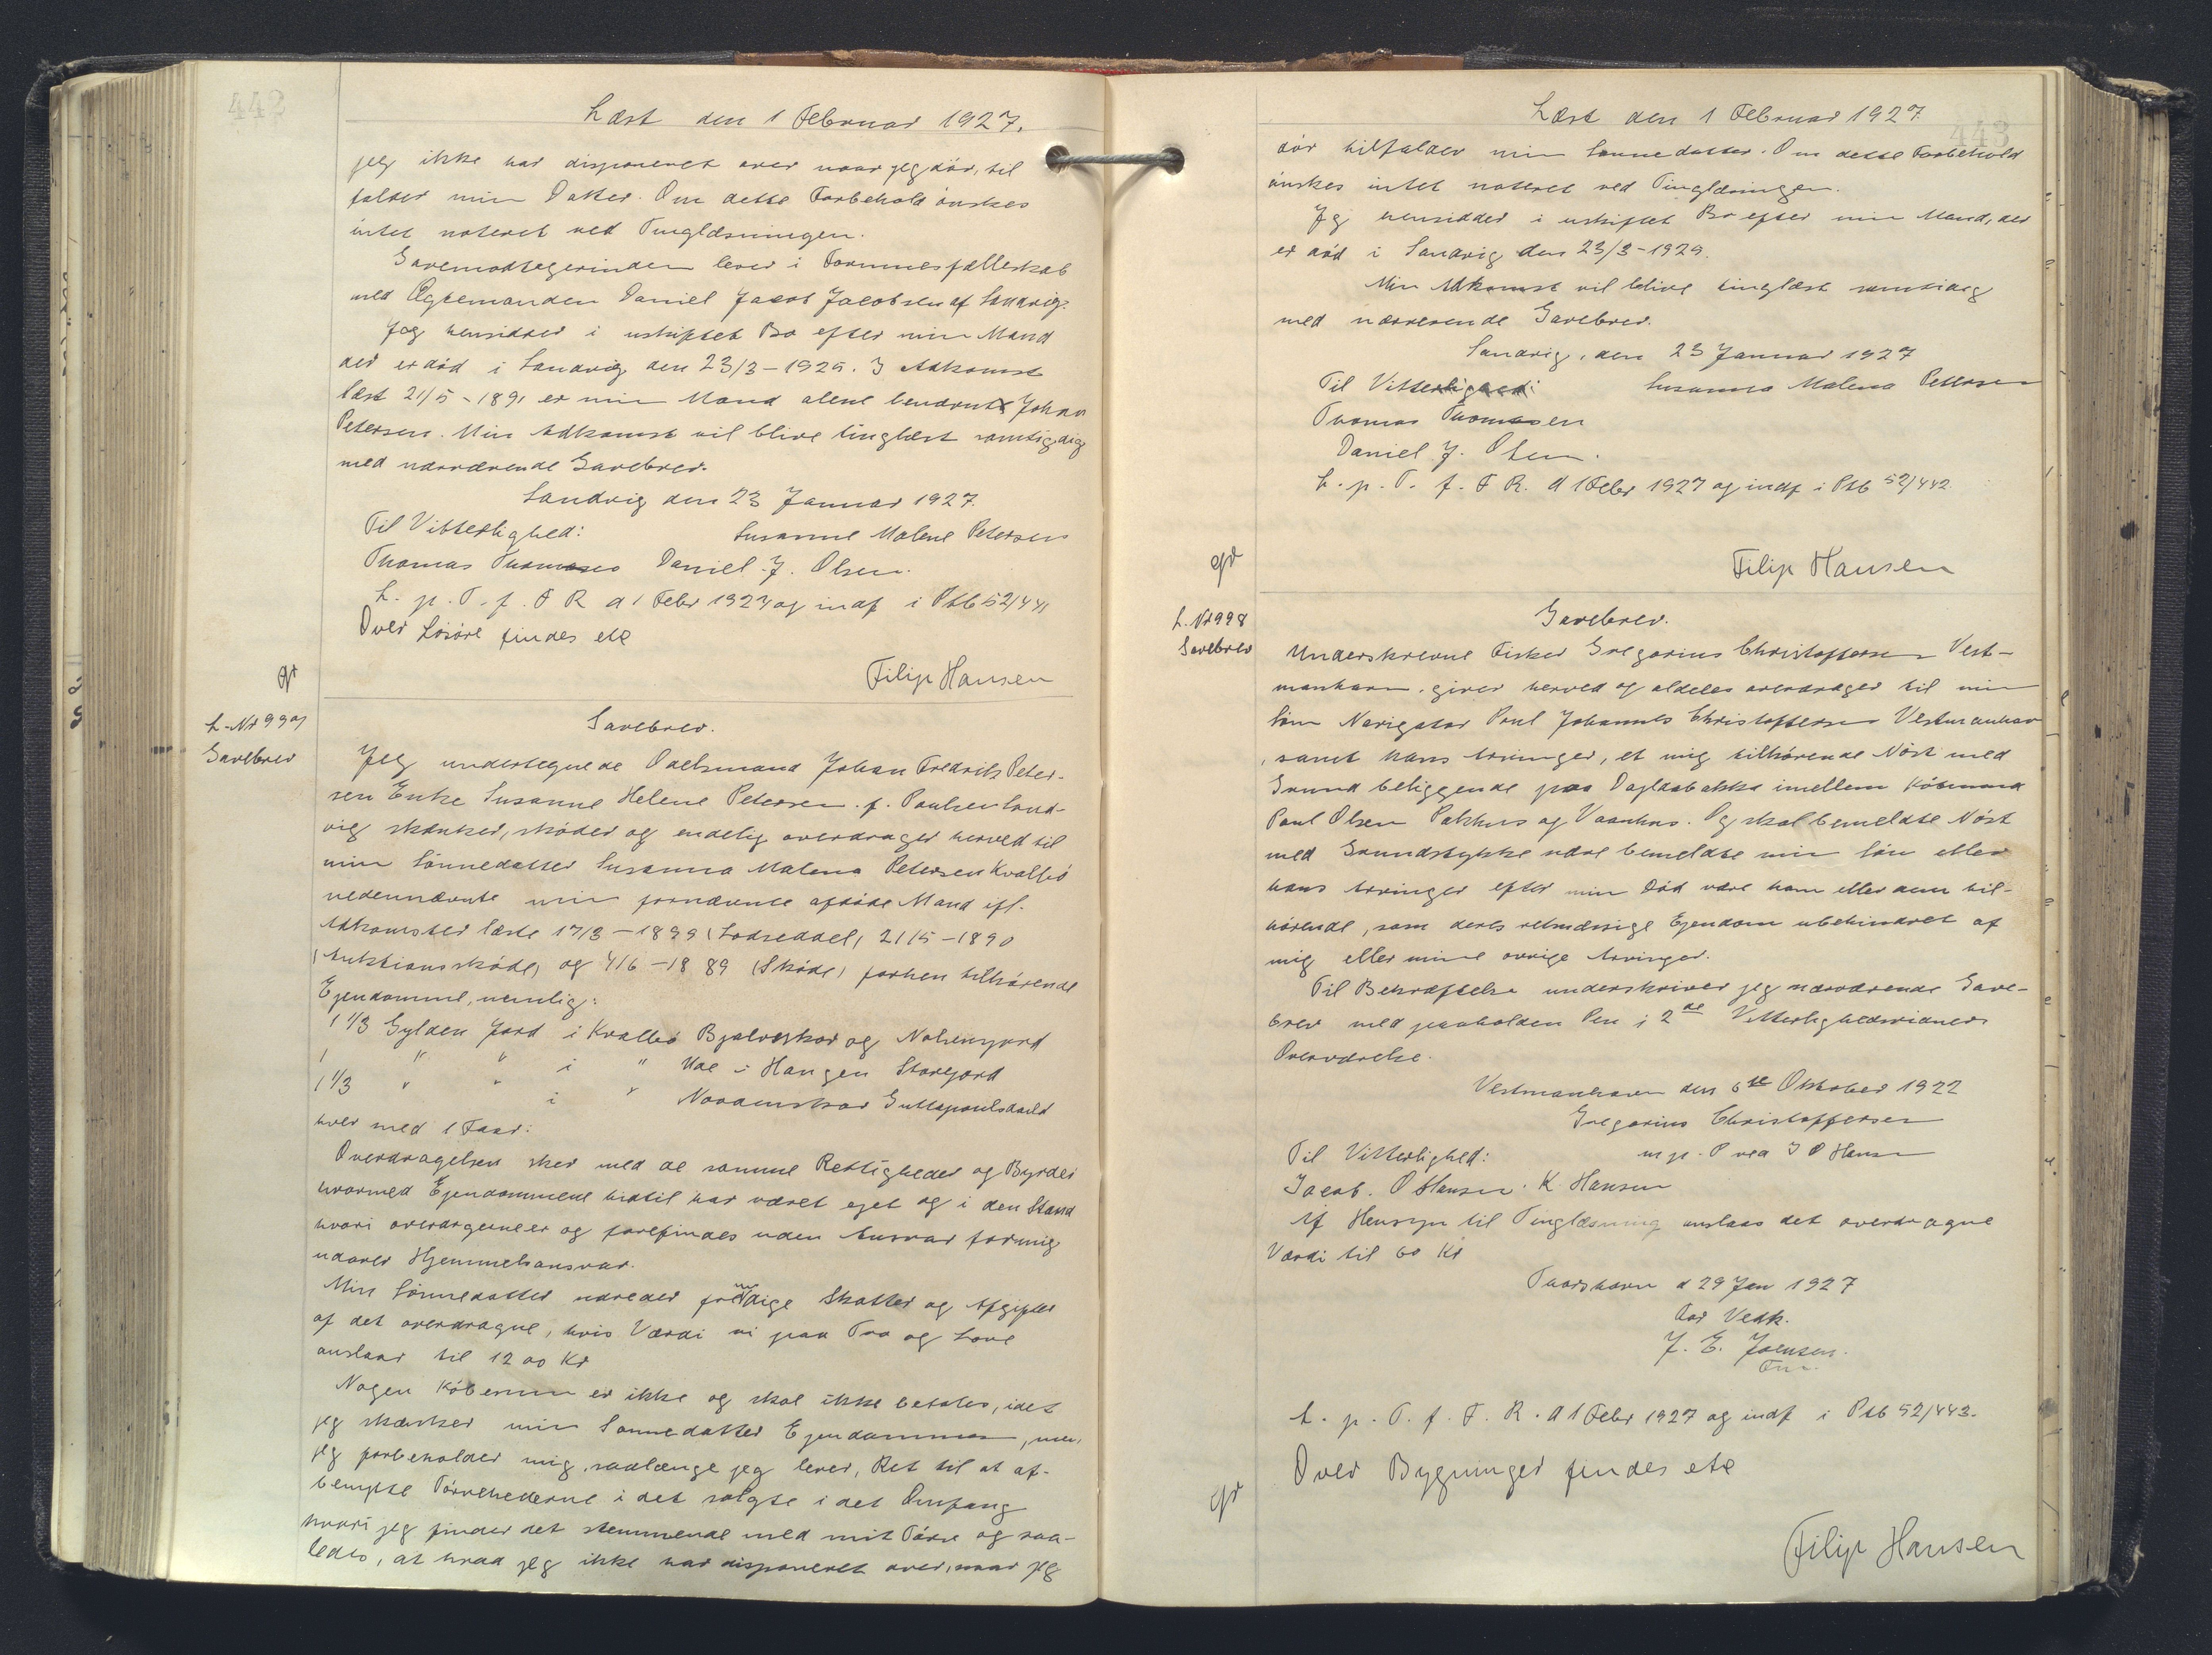 442
Læst den 1 Februar 1927.
jeg ikke har disponeret over naar jeg dör, til
falder min Datter. Om dette Forbehold önskes
intet noteret ved Tinglæsningen.
Gavemodtagerinden lever i Formuesfælleskab
med Ægtemanden Daniel Jacob Jacobsen af Sandvig.
Jeg hensidder i uskiftet Bo efter min Mand
der er död i Sandvig den 23/3-1925. I Adkomst
læst 21/5-1891 er min Mand alene benævnt Johan
Petersen. Min Adkomst vil blive tinglæst samtigdig
med nærværende Gavebrev.
Sandvig den 23 Januar 1927.
Til Vitterlighed: Susanne Malene Petersen
Thomas Thomasen Daniel J. Olsen.
L. p. T. f. F R d 1 Febr 1927 og indf i Ptb 52/441
Over Lösöre findes etc
Filip Hansen
L-Nr 997
Gavebrev
Gavebrev.
Jeg undertegnede Odelsmand Johan Fredrik Peter-
sen Enke Susanne Helene Petersen f. Poulsen Sand-
vig skænker, sköder og endelig overdrager herved til
min Sönnedatter Susanna Malena Petersen Kvalbö
nedennævnte min fornævnte afdöde Mand ifl.
Adkomster læste 17/3-1899 (Lodseddel) 21/5-1890
(Auktionsskøde) og 4/6-1889 (Sköde) forhen tilhörende
Ejendomme, nemlig:
1 1/3 Gylden Jord i Kvalbö Bjalvaskor og Nolsenjord
1 " " i " Ude i Haugen Storejord
1 1/3 " " i " Nordenskor Guttepoulsdæld
hver med 1 Faar.
Overdragelsen sker med de samme Rettigheder og Byrder
hvormed Ejendommene hidtil har været ejet og i den Stand
hvori overdragerne er og forefindes uden Ansvar for mig
udover Hjemmelsansvar.
Min Sönnedatter udreder fremdige Skatter og Afgifter
af det overdragne, hvis Værdi vi paa Tro og Love
anslaar til 1200 Kr
Nogen Köbesum er ikke og skal ikke betales, idet
jeg skænker min Sönnedatter Ejendommen, men
jeg forbeholder mig, saalænge jeg lever, Ret til at af-
benytte Törvehederne i det solgte i det Omfang
hvori jeg finder det stemmende med mit Tárv og saa-
ledes, at hvad jeg ikke har disponeret over, naar jeg
443
Læst den 1 Februar 1927
dör tilfalder min Sönnedatter. Om dette Forbehold
önskes intet noteret ved Tinglæsningen.
Jeg hensidder i uskiftet Bo efter min Mand, der
er död i Sandvig den 23/3-1929.
Min Adkomst vil blive tinglæst samtidig
med nærværende Gavebrev.
Sandvig, den 23 Januar 1927
Til Vitterlighed: Susanna Malena Petersen
Thomas Thomasen
Daniel J. Olsen.
L. p. T. f. F R. d 1 Febr 1927 og indf i Ptb 52/442.
Filip Hansen
L. Nr 998
Gavebrev
Gavebrev.
Underskrevne Fisker Gregorius Christoffersen Vest-
manhavn, giver herved og aldeles overdrager til min
Sön Navigatør Poul Johannes Christoffersen Vestmanhavn
, samt hans Arvinger, et mig tilhörende Nöst med
Grund beliggende paa Daglasbakka imellem Köbmand
Poul Olsen Pakhus og Vaanhus. Og skal bemeldte Nöst
med Grundstykke være bemeldte min Sön eller
hans Arvinger efter min Död være ham eller dem til-
hörende, som deres retmæssige Ejendom ubehindret af
mig eller mine övrige Arvinger.
Til Bekræftelse underskriver jeg nærværende Gave-
brev med paaholden Pen i 2de Vitterlighedsvidners
Overværelse.
Vestmanhavn den 6te Oktober 1922
Gregorius Christoffersen
Til Vitterlighed: m. p. P ved J O Hansen
Jacob. O Hansen. K. Hansen
Af Hensyn til Tinglæsning anslaas det overdragne
Værdi til 60 Kr
Thorshavn d 29 Jan 1927
For Vedk.
J. E. Joensen.
L. p. T. f. F. R. d 1 Febr 1927 og indf i Ptb 52/443.
Over Bygninger findes etc
Filip Hansen